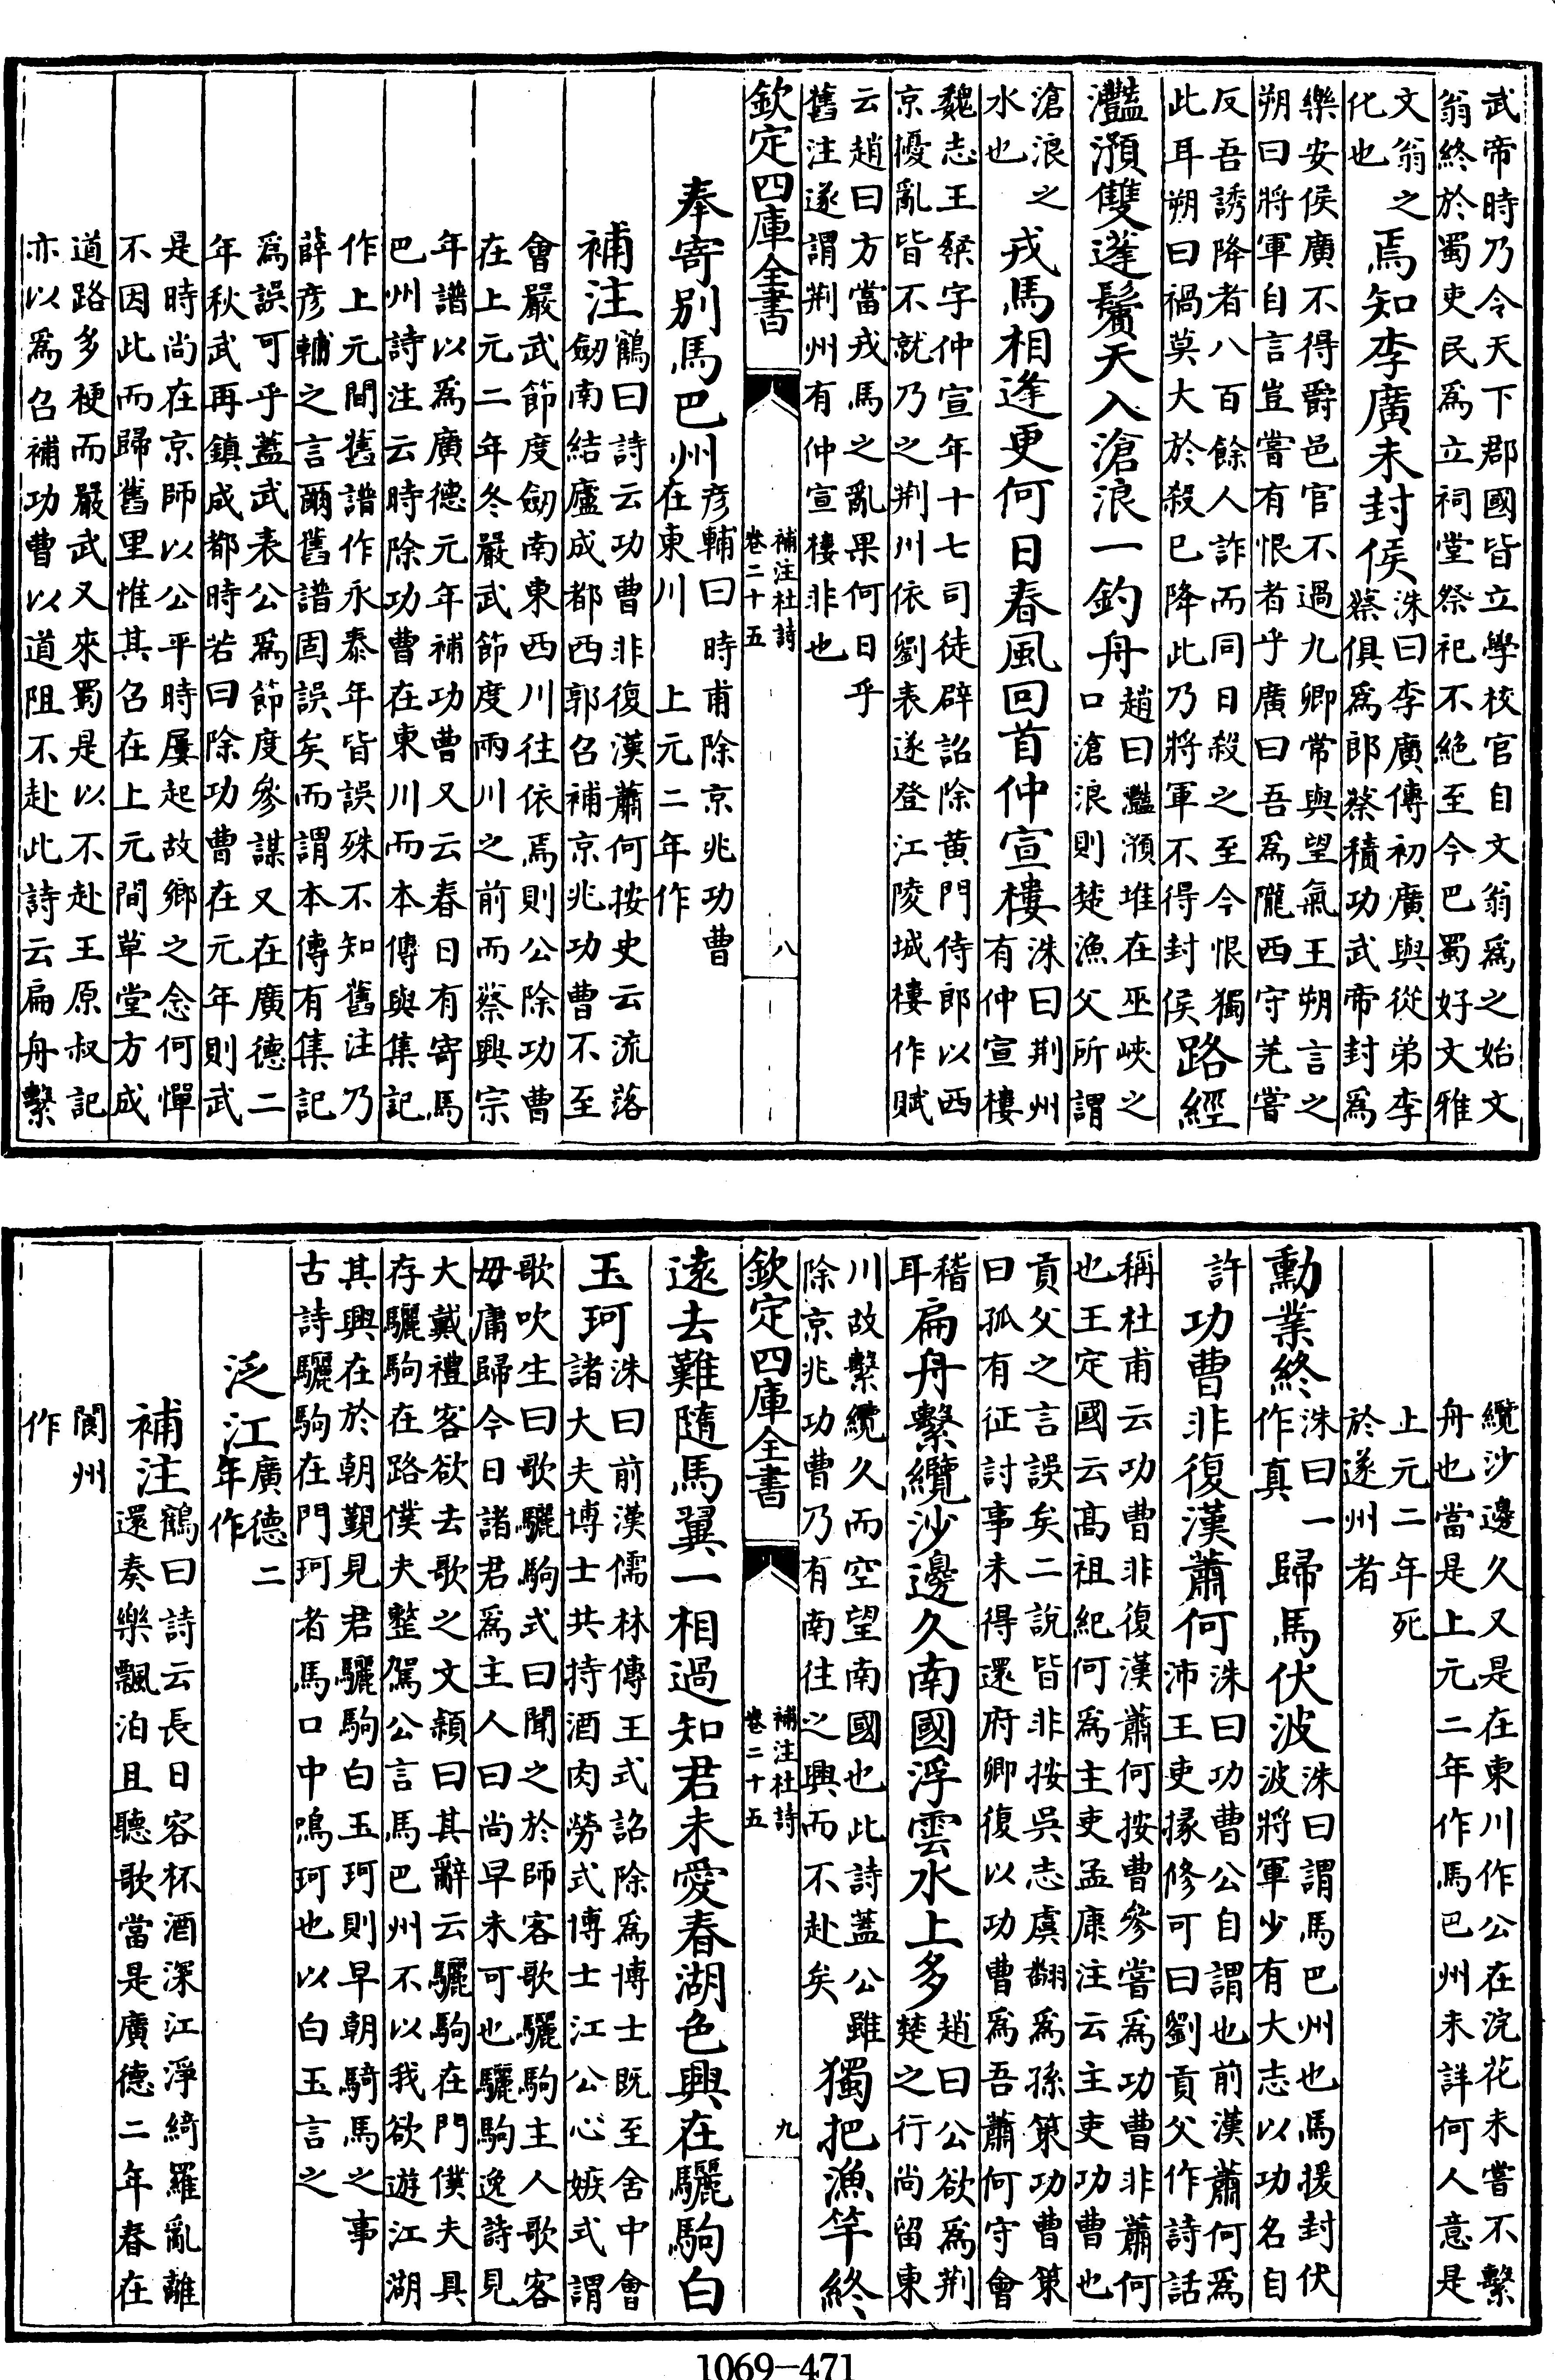 武帝時乃令天下郡國皆立學校官自文翁為之始文
翁終於蜀吏民為立祠堂祭祀不絕至今巴蜀好文雅
文翁之
化也
焉知李廣未封侯
洙曰李廣傳初廣與從弟李
蔡俱為郎蔡積功武帝封為
樂安侯廣不得爵邑官不過九卿常與望氣王朔言之
朔曰將軍自言豈嘗有恨者乎廣曰吾為隴西守羌嘗
反吾誘降者八百餘人詐而同日殺之至今恨獨
此耳朔曰禍莫大於殺已降此乃將軍不得封侯
路經
灩澦雙蓬鬢天入滄浪一釣舟
趙曰灩澦堆在巫峽之
口滄浪則楚漁父所謂
滄浪之
水也
戎馬相逢更何日春風回首仲宣樓
洙曰荆州
有仲宣樓
魏志王粲字仲宣年十七司徒辟詔除黄門侍郎以西
京擾亂皆不就乃之荆川依劉表遂登江陵城樓作賦
云趙曰方當戎馬之亂果何日乎
舊注遂謂荆州有仲宣樓非也
欽定四庫全書
補注杜詩
卷二十五
八
奉寄别馬巴州
彦輔曰時甫除京兆功曹
在東川 上元二年作
補注
鶴曰詩云功曹非復漢蕭何按史云流落
劒南結廬成都西郭召補京兆功曹不至
會嚴武節度劒南東西川往依焉則公除功曹
在上元二年冬嚴武節度兩川之前而蔡興宗
年譜以為廣德元年補功曹又云春日有寄馬
巴州詩注云時除功曹在東川而本傳與集記
作上元間舊譜作永泰年皆誤殊不知舊注乃
薛彦輔之言爾舊譜固誤矣而謂本傳有集記
為誤可乎蓋武表公為節度參謀又在廣德二
年秋武再鎮成都時若曰除功曹在元年則武
是時尚在京師以公平時屢起故鄉之念何憚
不因此而歸舊里惟其召在上元間草堂方成
道路多梗而嚴武又來蜀是以不赴王原叔記
亦以為召補功曹以道阻不赴此詩云扁舟繫
纜沙邊久又是在東川作公在浣花未嘗不繫
舟也當是上元二年作馬巴州未詳何人意是
上元二年死
於遂州者
勳業終
洙曰一
作真
歸馬伏波
洙曰謂馬巴州也馬援封伏
波將軍少有大志以功名自
許
功曹非復漢蕭何
洙曰功曹公自謂也前漢蕭何為
沛王吏掾修可曰劉貢父作詩話
稱杜甫云功曹非復漢蕭何按曹參嘗為功曹非蕭何
也王定國云髙祖紀何為主吏孟康注云主吏功曹也
貢父之言誤矣二說皆非按吳志虞翻為孫策功曹策
曰孤有征討事未得還府卿復以功曹為吾蕭何守會
稽
耳
扁舟繫纜沙邊久南國浮雲水上多
趙曰公欲為荆
楚之行尚留東
川故繫纜久而空望南國也此詩蓋公雖
除京兆功曹乃有南往之興而不赴矣
獨把漁竿終
欽定四庫全書
補注杜詩
卷二十五
九
逺去難隨馬翼一相過知君未愛春湖色興在驪駒白
玉珂
洙曰前漢儒林傳王式詔除為博士既至舍中會
諸大夫博士共持酒肉勞式博士江公心嫉式謂
歌吹生曰歌驪駒式曰聞之於師客歌驪駒主人歌客
毋庸歸今日諸君為主人曰尚早未可也驪駒逸詩見
大戴禮客欲去歌之文穎曰其辭云驪駒在門僕夫具
存驪駒在路僕夫整駕公言馬巴州不以我欲遊江湖
其興在於朝覲見君驪駒白玉珂則早朝騎馬之事
古詩驪駒在門珂者馬口中鳴珂也以白玉言之
泛江
廣德二
年作
補注
鶴曰詩云長日容杯酒深江淨綺羅亂離
還奏樂飄泊且聽歌當是廣德二年春在
閬州
作
1069—471